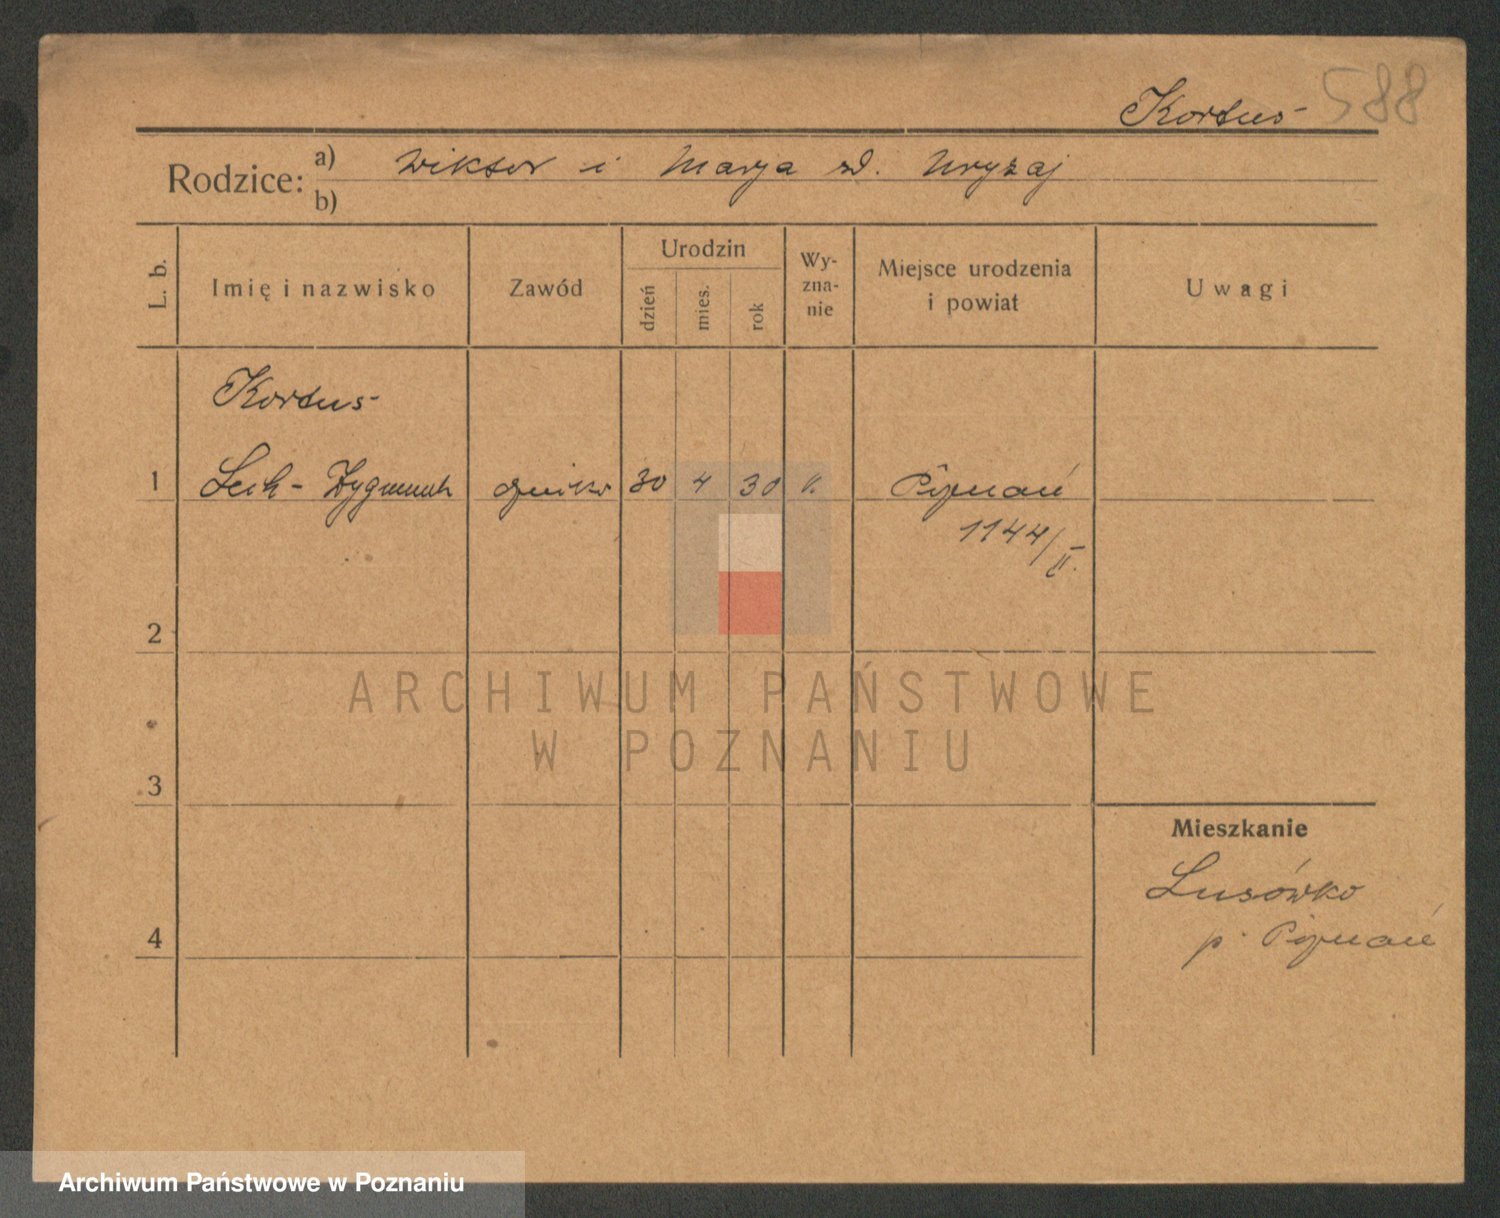 588
Kortus
Rodzice: a) Wiktor i Marja zd. Uryzaj
b)
L. b. Imię i nazwisko Zawód Urodzin dzień mies. rok Wy-zna-nie Miejsce urodzenia i powiat Uwagi
Kortus
1 Lech - Zygmunt 30 4 30 k. Poznań
1144/II.
2
ARCHIWUM PAŃSTWOWE
W POZNANIU
3
Mieszkanie
Lusówko
4 p. Poznań
Archiwum Państwowe w Poznaniu